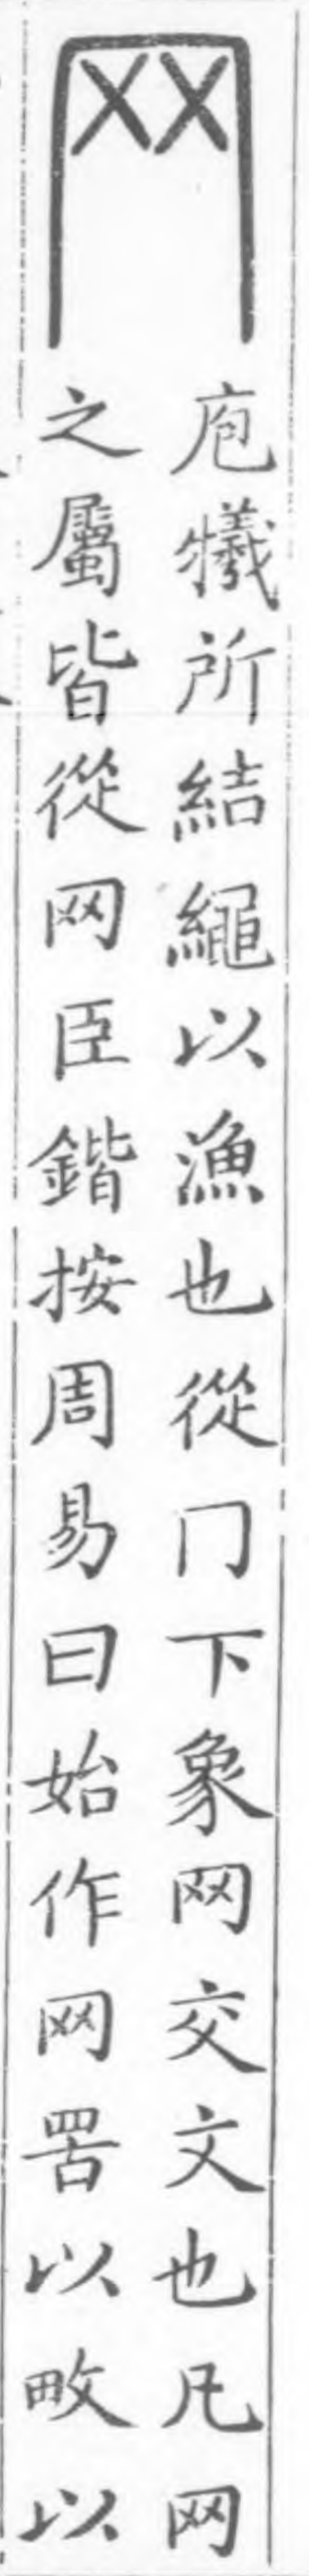 网
庖犧所結繩以漁也從冂下象网交文也凡网
之屬皆從网臣鍇按周易曰始作网罟以畋以